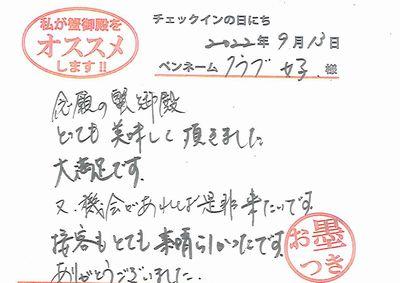 私が蟹御殿を
オススメ
します!!
チェックインの日にち
2022年9月13日
ペンネーム クラブ 好子 様
念願の蟹御殿
とても美味しく頂きました
大満足です。
又、機会があれば是非来たいです。
接客もとても素晴らしかったです。
ありがとうございました。
お墨
つき